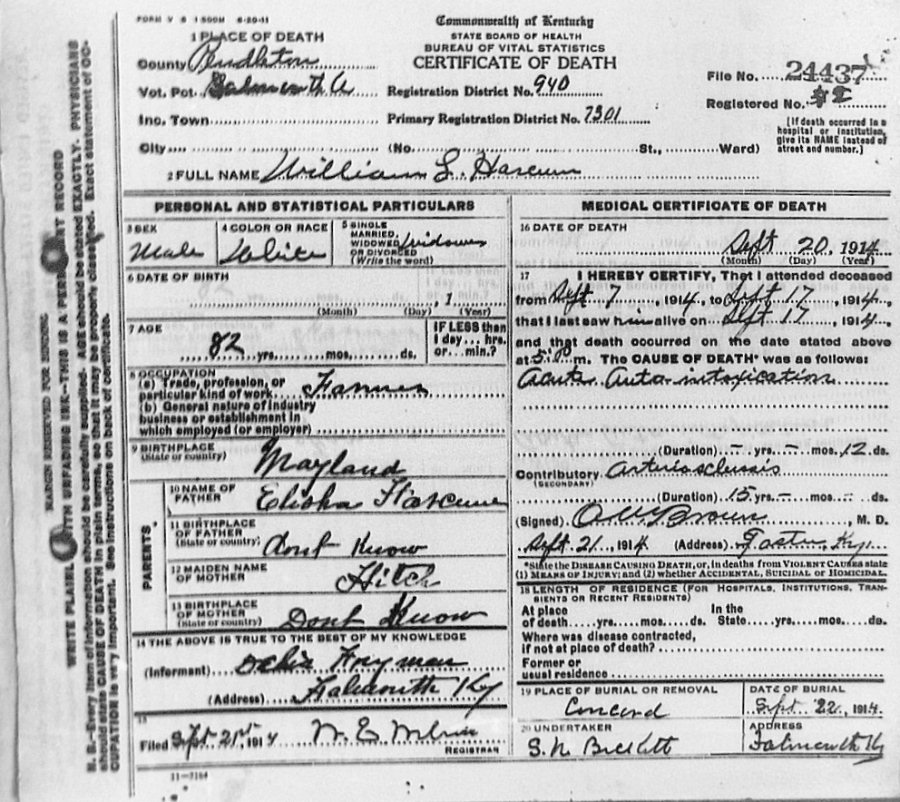 FORM V S 1 500M 6-20-11
Commonwealth of Kentucky
STATE BOARD OF HEALTH
BUREAU OF VITAL STATISTICS
CERTIFICATE OF DEATH
1 PLACE OF DEATH
County Pendleton
Vot. Pct. Falmouth
Inc. Town
City
Registration District No. 940
Primary Registration District No. 7301
(No. St., Ward)
File No. 24437
Registered No. 92
[If death occurred in a
hospital or institution,
give its NAME instead of
street and number.]
2 FULL NAME William L. Harcum
PERSONAL AND STATISTICAL PARTICULARS
3 SEX
Male
4 COLOR OR RACE
White
5 SINGLE
MARRIED,
WIDOWED
OR DIVORCED
(Write the word)
Widower
6 DATE OF BIRTH
1
(Month) (Day) (Year)
7 AGE
82 yrs. mos. ds.
IF LESS than
1 day... hrs.
or... min.?
8 OCCUPATION
(a) Trade, profession, or
particular kind of work Farmer
(b) General nature of industry
business or establishment in
which employed (or employer)
9 BIRTHPLACE
(State or country)
Mayland
PARENTS
10 NAME OF
FATHER
Elisha Harcum
11 BIRTHPLACE
OF FATHER
(State or country)
Dont Know
12 MAIDEN NAME
OF MOTHER
Hitch
13 BIRTHPLACE
OF MOTHER
(State or country)
Dont Know
14 THE ABOVE IS TRUE TO THE BEST OF MY KNOWLEDGE
(Informant) Fryman
(Address) Falmouth Ky
15
Filed Sept 21st 1914 W. E.
REGISTRAR
11-3184
MEDICAL CERTIFICATE OF DEATH
16 DATE OF DEATH
Sept 20, 1914
(Month) (Day) (Year)
17 I HEREBY CERTIFY, That I attended deceased
from Sept 7, 1914, to Sept 17, 1914,
that I last saw him alive on Sept 17, 1914,
and that death occurred on the date stated above
at m. The CAUSE OF DEATH* was as follows:
Acute Auto-intoxication
(Duration) – yrs. – mos. 12 ds.
Contributory Arteriosclerosis
(SECONDARY)
(Duration) 15 yrs. – mos. – ds.
(Signed) Brown, M. D.
Sept 21, 1914 (Address) Foster, Ky.
*State the DISEASE CAUSING DEATH, or, in deaths from VIOLENT CAUSES state
(1) MEANS OF INJURY; and (2) whether ACCIDENTAL, SUICIDAL or HOMICIDAL.
18 LENGTH OF RESIDENCE (FOR HOSPITALS, INSTITUTIONS, TRAN-
SIENTS OR RECENT RESIDENTS)
At place In the
of death yrs. mos. ds. State yrs. mos. ds.
Where was disease contracted,
if not at place of death?
Former or
usual residence
19 PLACE OF BURIAL OR REMOVAL
Concord
DATE OF BURIAL
Sept 22, 1914
20 UNDERTAKER
S. N. Bickett
ADDRESS
Falmouth Ky
MARGIN RESERVED FOR BINDING
WRITE PLAINLY WITH UNFADING INK—THIS IS A PERMANENT RECORD
N. B.—Every item of information should be carefully supplied. AGE should be stated EXACTLY. PHYSICIANS
should state CAUSE OF DEATH in plain terms, so that it may be properly classified. Exact statement of OC-
CUPATION is very important. See instructions on back of certificate.